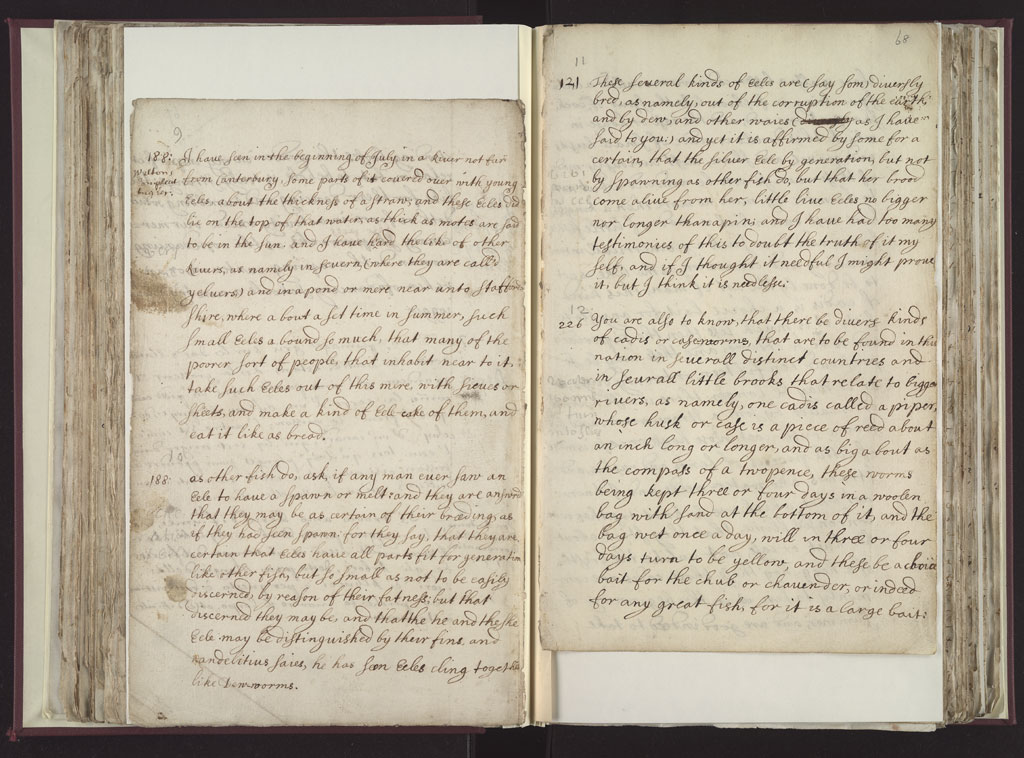 9
188: I have seen in the beginning of July, in a River not far
Waltons
Compleat
Angler.
from Canterbury, some parts of it covered over with young
Eeles, about the thickness of a straw; and these Eeles did
lie on the top of that water, as thick as motes are said
to be in the sun. and I have hard the like of other
Rivers, as namely in Severn, (where they are call'd
yelvers) and in a pond or mere, near unto Stafford
Shire, where a bout a set time in summer, such
small Eeles a bound so much, that many of the
poorer sort of people, that inhabit near to it,
take such Eeles out of this mere with sieves or
sheets, and make a kind of Eele-cake of them, and
eat it like as bread.
10
188 as other fish do, ask, if any man ever saw an
Eele to have a spawn or melt: and they are answrd
that they may be as certain of their breeding, as
if they had seen spawn: for they say, that they are
certain that Eeles have all parts fit for generation
like other fish, but so small as not to be easily
discerned, by reason of their fatness; but that
discerned they may be, and that the he and the she
Eele may be distinguished by their fins. and
Randelitius saies, he has seen Eeles cling together
like Dew-worms.
68
11
121 These several kinds of Eeles are (say som) diversly
bred, as namely, out of the corruption of the earth.
and by dew, and other waies (as I have
said to you.) and yet it is affirmed by some for a
certain, that the silver Eele by generation, but not
by spawning as other fish do, but that her brood
come alive from her, little live Eeles no bigger
nor longer than a pin; and I have had too many
testimonies of this to doubt the truth of it my
self, and if I thought it needful I might prove
it, but I think it is needlesse.
12
226 You are also to know, that there be divers kinds
of cadis or caseworms, that are to be found in this
nation in severall distinct countries and
in sevrall little brooks that relate to bigger
rivers, as namely, one cadis called a piper,
whose husk or case is a piece of reed about
an inch long or longer, and as big about as
the compass of a twopence, these worms
being kept three or four days in a woolen
bag with sand at the bottom of it, and the
bag wet once a day, will in three or four
days turn to be yellow, and these be a choice
bait for the chub or chavender, or indeed
for any great fish, for it is a large bait: